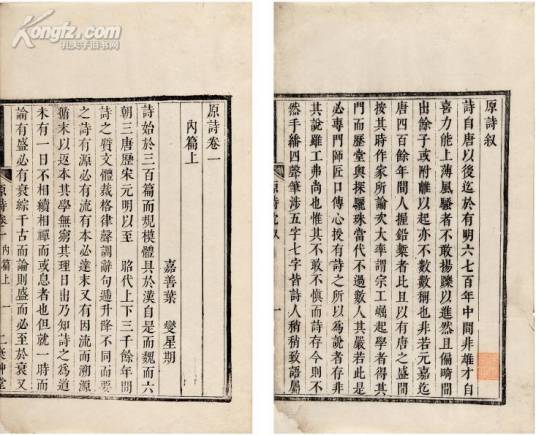 Kongfz.com
孔夫子旧书网
原詩叙
詩自唐以後迄於有明六七百年中間非雄才自
喜力能上薄風騷者不敢揚躒以進然且偏畸間
出餘子或附離以起亦不數數稱也非若元嘉迄
唐四百餘年間人握鉛槧者比且以有唐之盛間
按其時作家所論次大率謂宗工崛起學者得其
門而歷堂奧探驪珠當代不過數人其嚴若此是
必專門師匠口傳心授有詩之所以為說者存非
其說雖工弗尚也惟其不敢不慎而詩存今則不
然手繙四聲筆涉五字七字皆詩人稍稍致語屬
原詩 一
原詩卷一
內篇上
嘉善葉 燮星期
詩始於三百篇而規模體具於漢自是而魏而六
朝三唐歷宋元明以至 昭代上下三千餘年間
詩之質文體裁格律聲調辭句遞升降不同而要
之詩有源必有流有本必達末又有因流而溯源
循末以返本其學無窮其理日出乃知詩之為道
未有一日不相續相禪而或息者也但就一時而
論有盛必有衰綜千古而論則盛而必至於衰又
原詩卷一 內篇上 一 二棄草堂